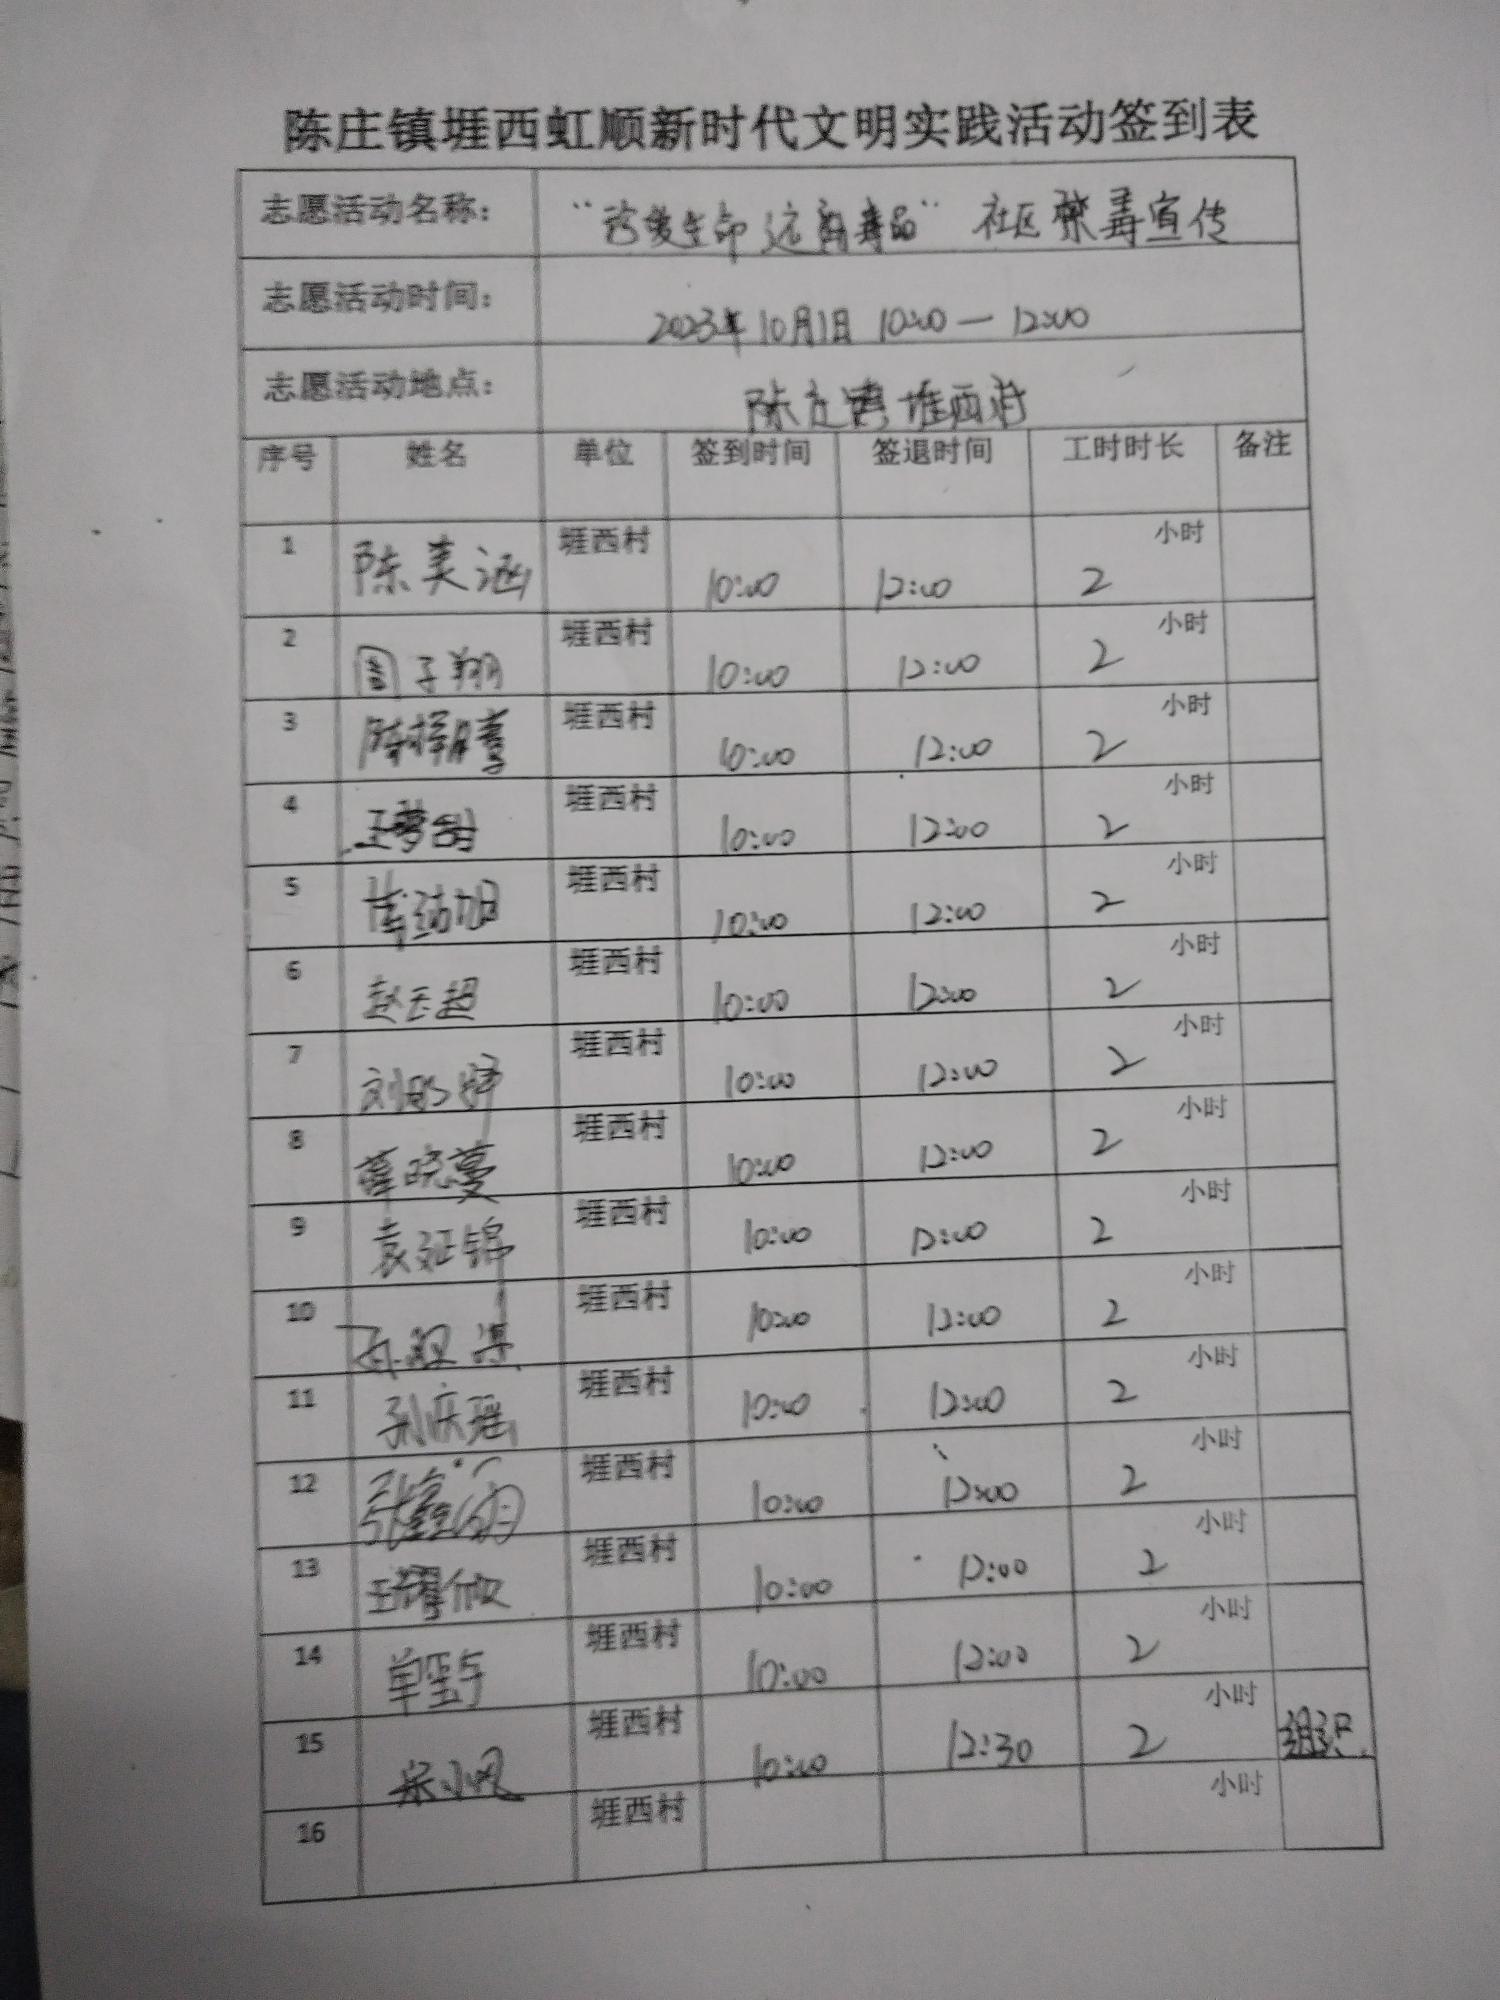 陈庄镇堐西虹顺新时代文明实践活动签到表
志愿活动名称： “珍爱生命 远离毒品” 社区禁毒宣传
志愿活动时间： 2023年10月1日 10:00—12:00
志愿活动地点： 陈庄镇堐西村
序号 姓名 单位 签到时间 签退时间 工时时长 备注
1 陈美涵 堐西村 10:00 12:00 2 小时
2 周子翔 堐西村 10:00 12:00 2 小时
3 堐西村 10:00 12:00 2 小时
4 堐西村 10:00 12:00 2 小时
5 堐西村 10:00 12:00 2 小时
6 赵天超 堐西村 10:00 12:00 2 小时
7 堐西村 10:00 12:00 2 小时
8 薛晓蔓 堐西村 10:00 12:00 2 小时
9 袁延锦 堐西村 10:00 12:00 2 小时
10 堐西村 10:00 12:00 2 小时
11 孙庆瑶 堐西村 10:00 12:00 2 小时
12 堐西村 10:00 12:00 2 小时
13 堐西村 10:00 12:00 2 小时
14 堐西村 10:00 12:00 2 小时
15 宋小凤 堐西村 10:00 12:30 2 小时 组织
16 堐西村 小时